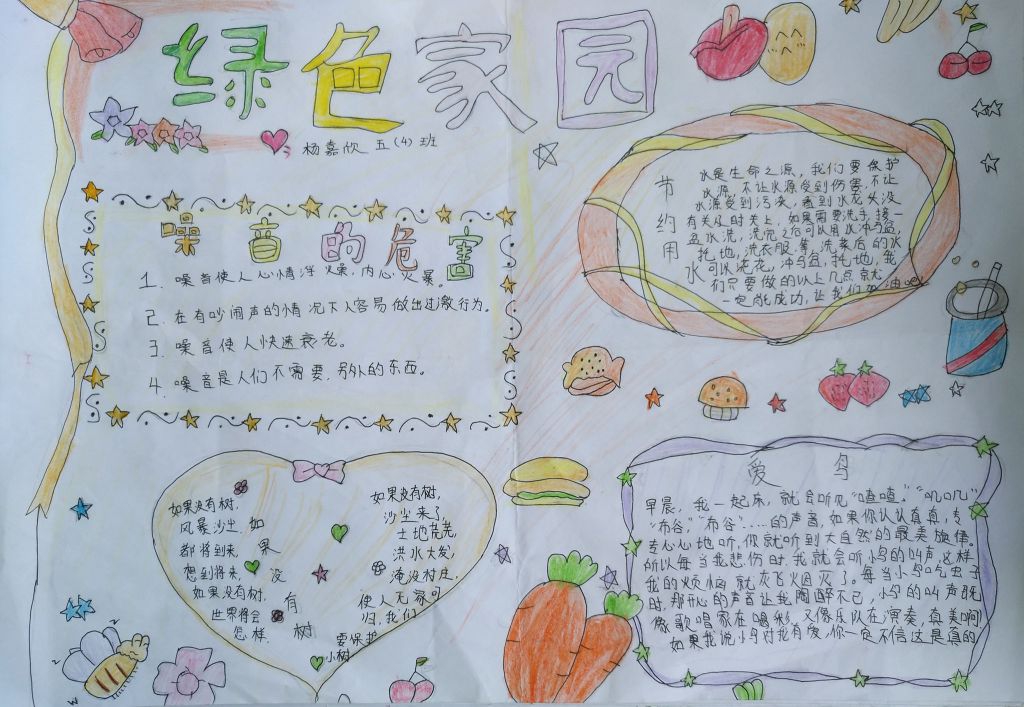 绿色家园
杨嘉欣 五(4)班
噪音的危害
1. 噪音使人心情浮燥,内心火暴。
2. 在有吵闹声的情况下人容易做出过激行为。
3. 噪音使人快速衰老。
4. 噪音是人们不需要,别外的东西。
节约用水
水是生命之源,我们要保护
水源,不让水源受到伤害,不让
水源受到污染,看到水龙头没
有关及时关上,如果需要洗手,接一
盆水洗,洗完之后可以用水冲马盆,
拖地,洗衣服等,洗菜后的水
可以浇花,冲马盆,拖地,我
们只要做的以上几点就
一定能成功,让我们加油吧
如果没有树
如果没有树,
风暴沙尘,
都将到来,
想到将来,
如果没有树,
世界将会
怎样.
如果没有树,
沙尘来了,
土地荒芜,
洪水大发,
淹没村庄,
使人无家可
归,我们
要保护
小树
爱鸟
早晨,我一起床,就会听见“喳喳.”“叽叽”
“布谷”,“布谷”.....的声音,如果你认认真真,专
专心心地听,你就听到大自然的最美旋律。
所以每当我悲伤时,我就会听小鸟的叫声,这样
我的烦恼就灰飞烟灭了。每当小鸟吃虫子
时,那开心的声音让我陶醉不已,小鸟的叫声既
像歌唱家在喝彩,又像乐队在演奏,真美啊
如果我说小鸟对我有爱,你一定不信这是真的